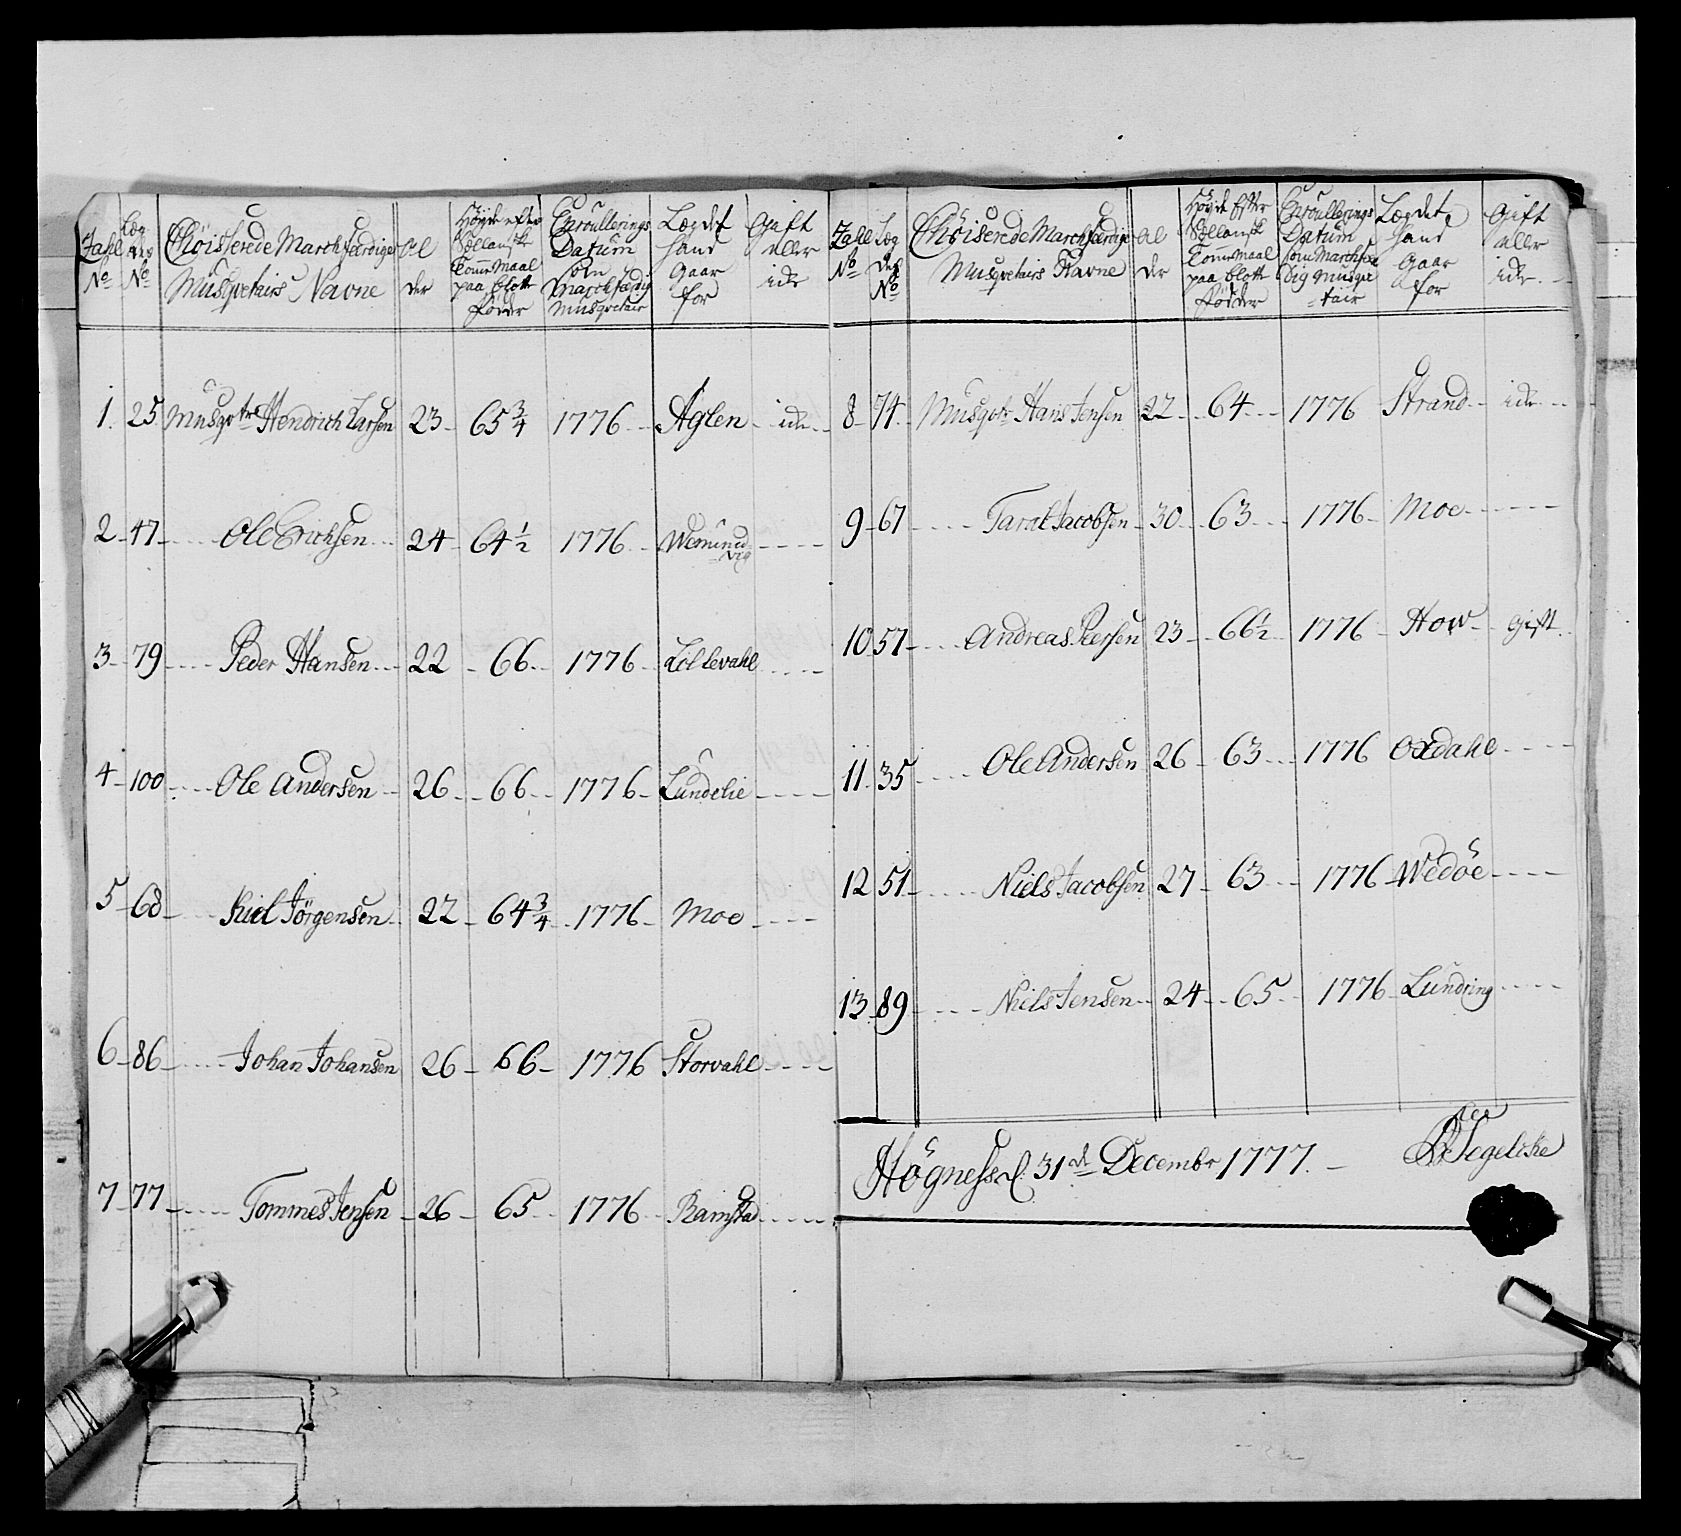 Zahl No | Læg des No | Chöisserede March færdige Musqvetairs Navne | Al der | Höyde efter Siellansk Tomme Maal paa blotte födder | Enroullerings Datum som March færdig Musqvetair | Lægdet hand Gaar for | Gift eller icke
1. 25. Musqvtr Hendrich Larsen 23 - 65 3/4 1776 - Aglen - icke
2 - 47 - Ole Erichsen - 24 - 64 1/2 1776 - Wemund Nig - -
3 - 79 - Peder Hansen - 22 - 66 - 1776 - Lollevahl - -
4 - 100 - Ole Andersen - 26 - 66 - 1776 - Lundelie - -
5 - 68 - Kiel Jörgensen - 22 - 64 3/4 - 1776 - Moe - -
6 - 86 - Johan Johansen 26 - 66 - 1776 Storvahl - -
7 - 77 - Tommes Jensen - 26 - 65 - 1776 - Ramstad - -
Zahl No | Læg des No | Chöiserede March færdige Musqvetairs Navne | Al der | Höyde Efter Siellansk Tomme Maal paa blotte födder | Enroullerings Datum som March fæ dig Musqve tair | Lægdet hand Gaar for | Gift eller icke
8 - 74 - Musqvtr Hans Jensen 22 - 64 - 1776 Strand - icke
9 - 67 - Taral Jacobsen - 30 - 63 - 1776 - Moe - -
10 57 - Andreas Peersen 23 - 66 1/2 - 1776 - How - Gift
11 35 - Ole Andersen 26 - 63 - 1776 Oxdahl - -
12 51 - Niels Jacobsen 27 - 63 - 1776 Wedöe - -
13 89 - Niels Jensen - 24 - 65 - 1776 - Lundring - -
Högness d. 31d Decembr 1777.